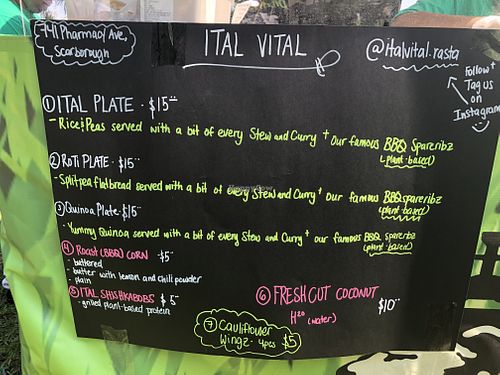 741 Pharmacy Ave,
Scarborough
ITAL VITAL
@italvital.rasta
Follow +
Tag us
on
Instagram
① ITAL PLATE - $15
- Rice & Peas served with a bit of every Stew and Curry + our famous BBQ Spareribz
(plant-based)
② Roti PLATE - $15
- Splitpea flatbread served with a bit of every Stew and Curry + our famous BBQ spareribz
(plant-based)
③ Quinoa Plate - $15
- Yummy Quinoa served with a bit of every Stew and Curry + our famous BBQ spareribz
(plant-based)
④ Roast (BBQ) CORN - $5
- buttered
- butter with lemon and chili powder
- plain
⑤ ITAL SHISHKABOBS $5
- grilled plant-based protein
⑥ FRESH CUT COCONUT
H2O (water) $10
⑦ Cauliflower
Wingz - 4pcs $5